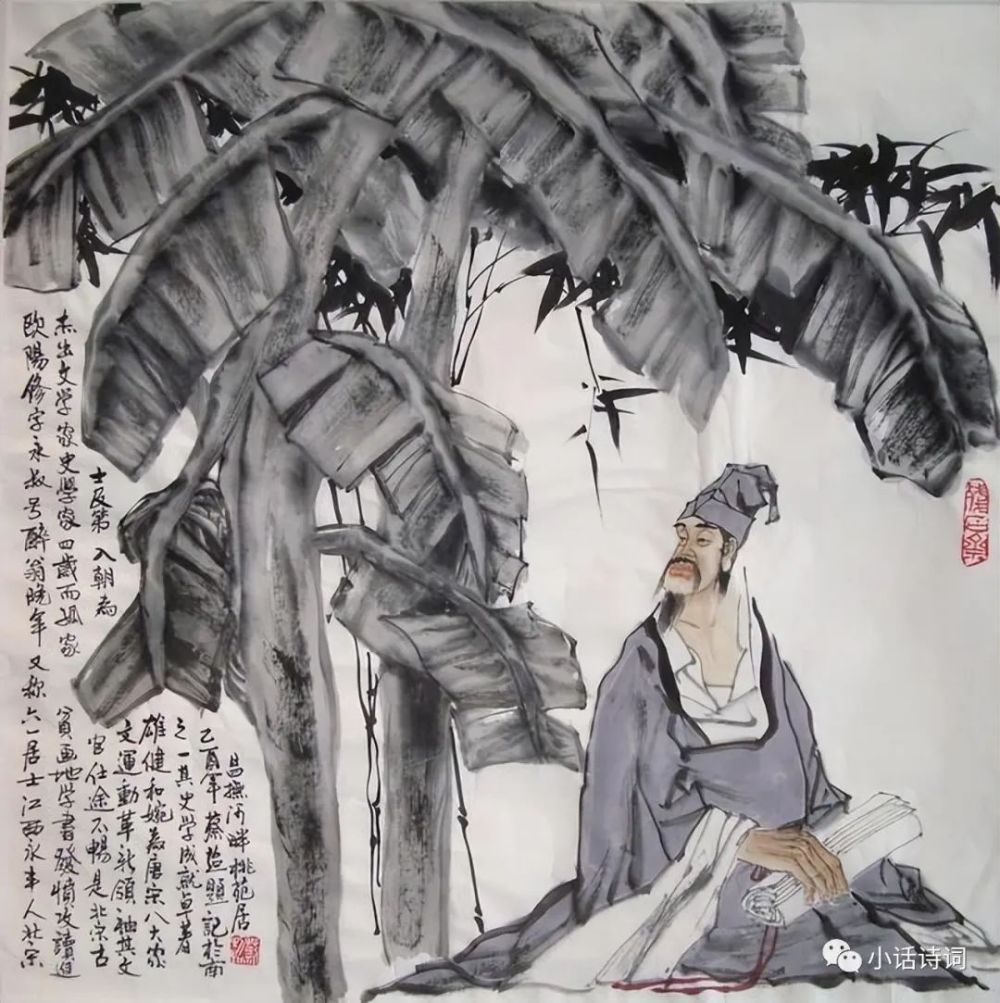 欧陽修字永叔号醉翁晚年又称六一居士江西永丰人北宋
杰出文学家史學家四歲而孤家貧画地学書發憤攻讀進
士及第入朝為官仕途不暢是北宋古
文運動革新領袖其文
雄健和婉為唐宋八大家
之一其史学成就卓著
乙酉年蔡題記於南
昌撫河畔桃苑居
小话诗词